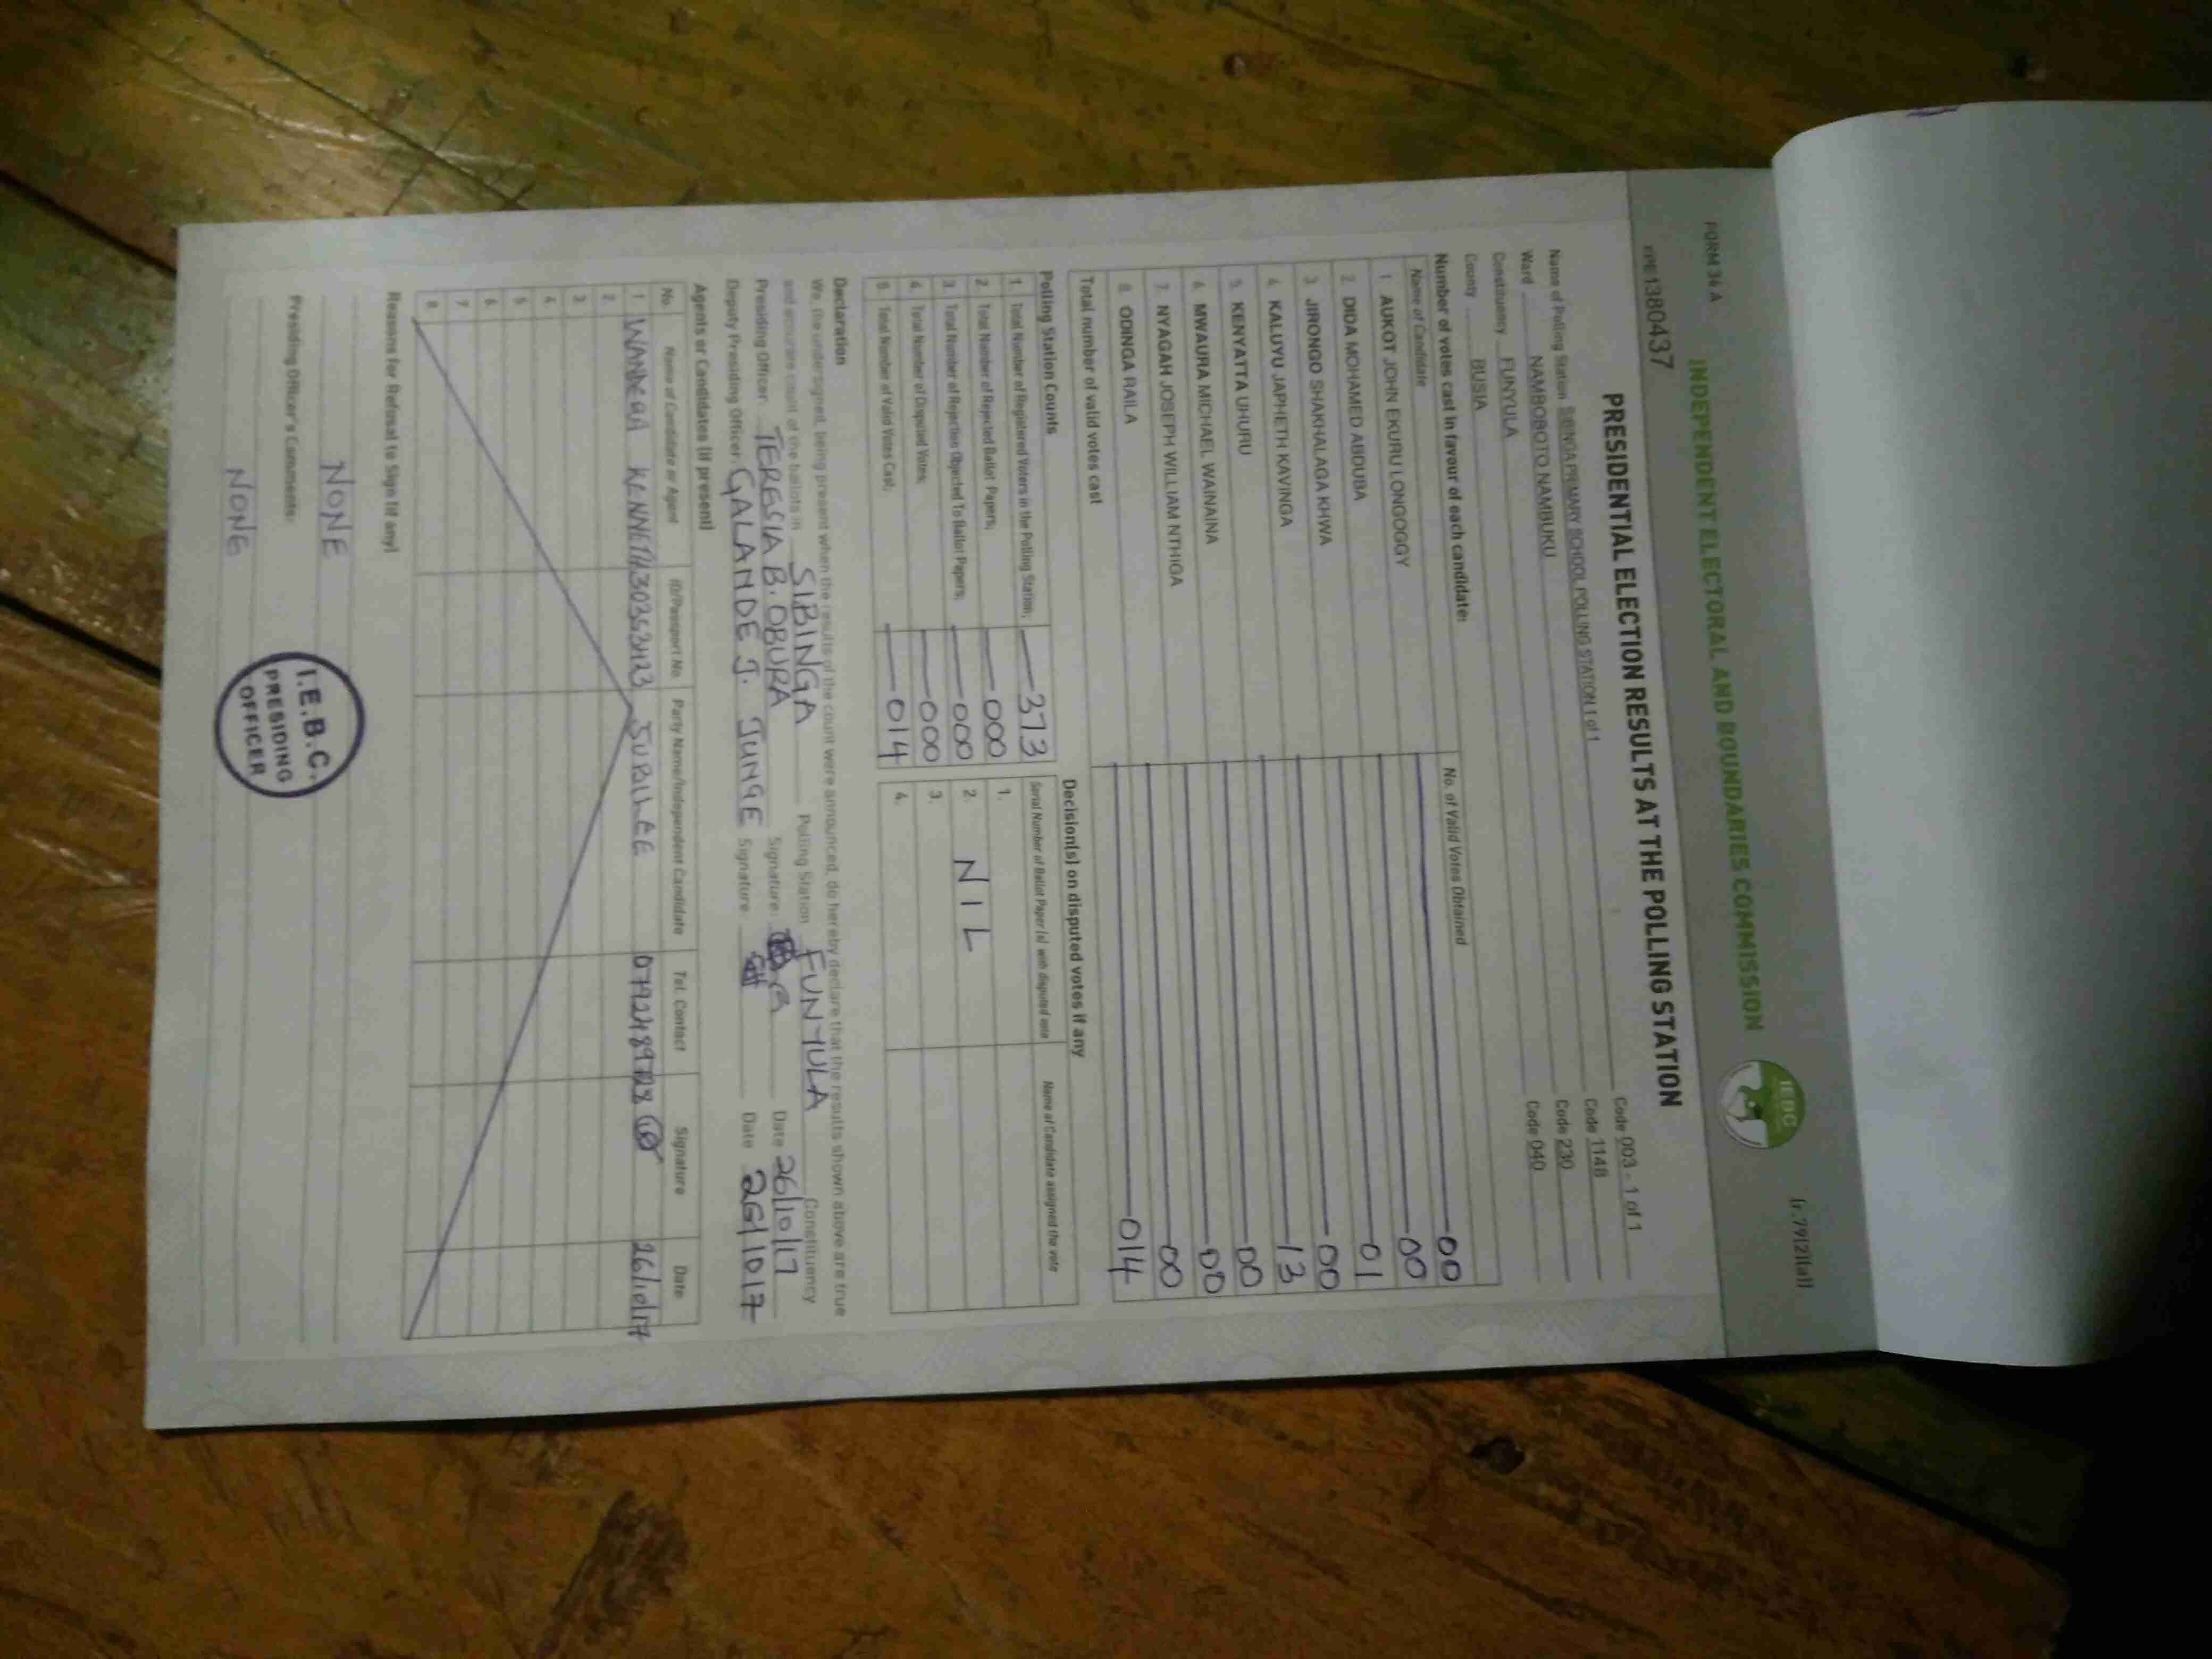 FORM 34 A
(r.79(2)(a))
INDEPENDENT ELECTORAL AND BOUNDARIES COMMISSION
IEBC
PRESIDENTIAL ELECTION RESULTS AT THE POLLING STATION
Name of Polling Station SIBINGA PRIMARY SCHOOL POLLING STATION 1 of 1 Code 003 - 1 of 1
Ward NAMBOBOTO NAMBUKU Code 1148
Constituency FUNYULA Code 230
County BUSIA Code 040
Number of votes cast in favour of each candidate:
Name of Candidate No. of Valid Votes Obtained
1. AUKOT JOHN EKURU LONGOGGY 00
2. DIDA MOHAMED ABDUBA 00
3. JIRONGO SHAKHALAGA KHWA 01
4. KALUYU JAPHETH KAVINGA 00
5. KENYATTA UHURU 13
6. MWAURA MICHAEL WAINAINA 00
7. NYAGAH JOSEPH WILLIAM NTHIGA 00
8. ODINGA RAILA 00
Total number of valid votes cast 014
Polling Station Counts
1. Total Number of Registered Voters in the Polling Station; 373
2. Total Number of Rejected Ballot Papers; 000
3. Total Number of Rejection Objected To Ballot Papers; 000
4. Total Number of Disputed Votes; 000
5. Total Number of Valid Votes Cast; 014
Decision(s) on disputed votes if any
Serial Number of Ballot Paper (s) with disputed vote Name of Candidate assigned the vote
1.
2. NIL
3.
4.
Declaration
We, the undersigned, being present when the results of the count were announced, do hereby declare that the results shown above are true
and accurate count of the ballots in SIBINGA Polling Station FUNYULA Constituency
Presiding Officer TERESIA B. OBURA Signature: Date 26/10/17
Deputy Presiding Officer GALANDE J. JUNGE Signature Date 26/10/17
Agents or Candidates (if present)
No. Name of Candidate or Agent ID/Passport No. Party Name/Independent Candidate Tel. Contact Signature Date
1 KENNETH JUBILEE 26/10/17
2
3
4
5
6
7
8
Reasons for Refusal to Sign (if any)
NONE
Presiding Officer's Comments:
NONE
I.E.B.C.
PRESIDING
OFFICER